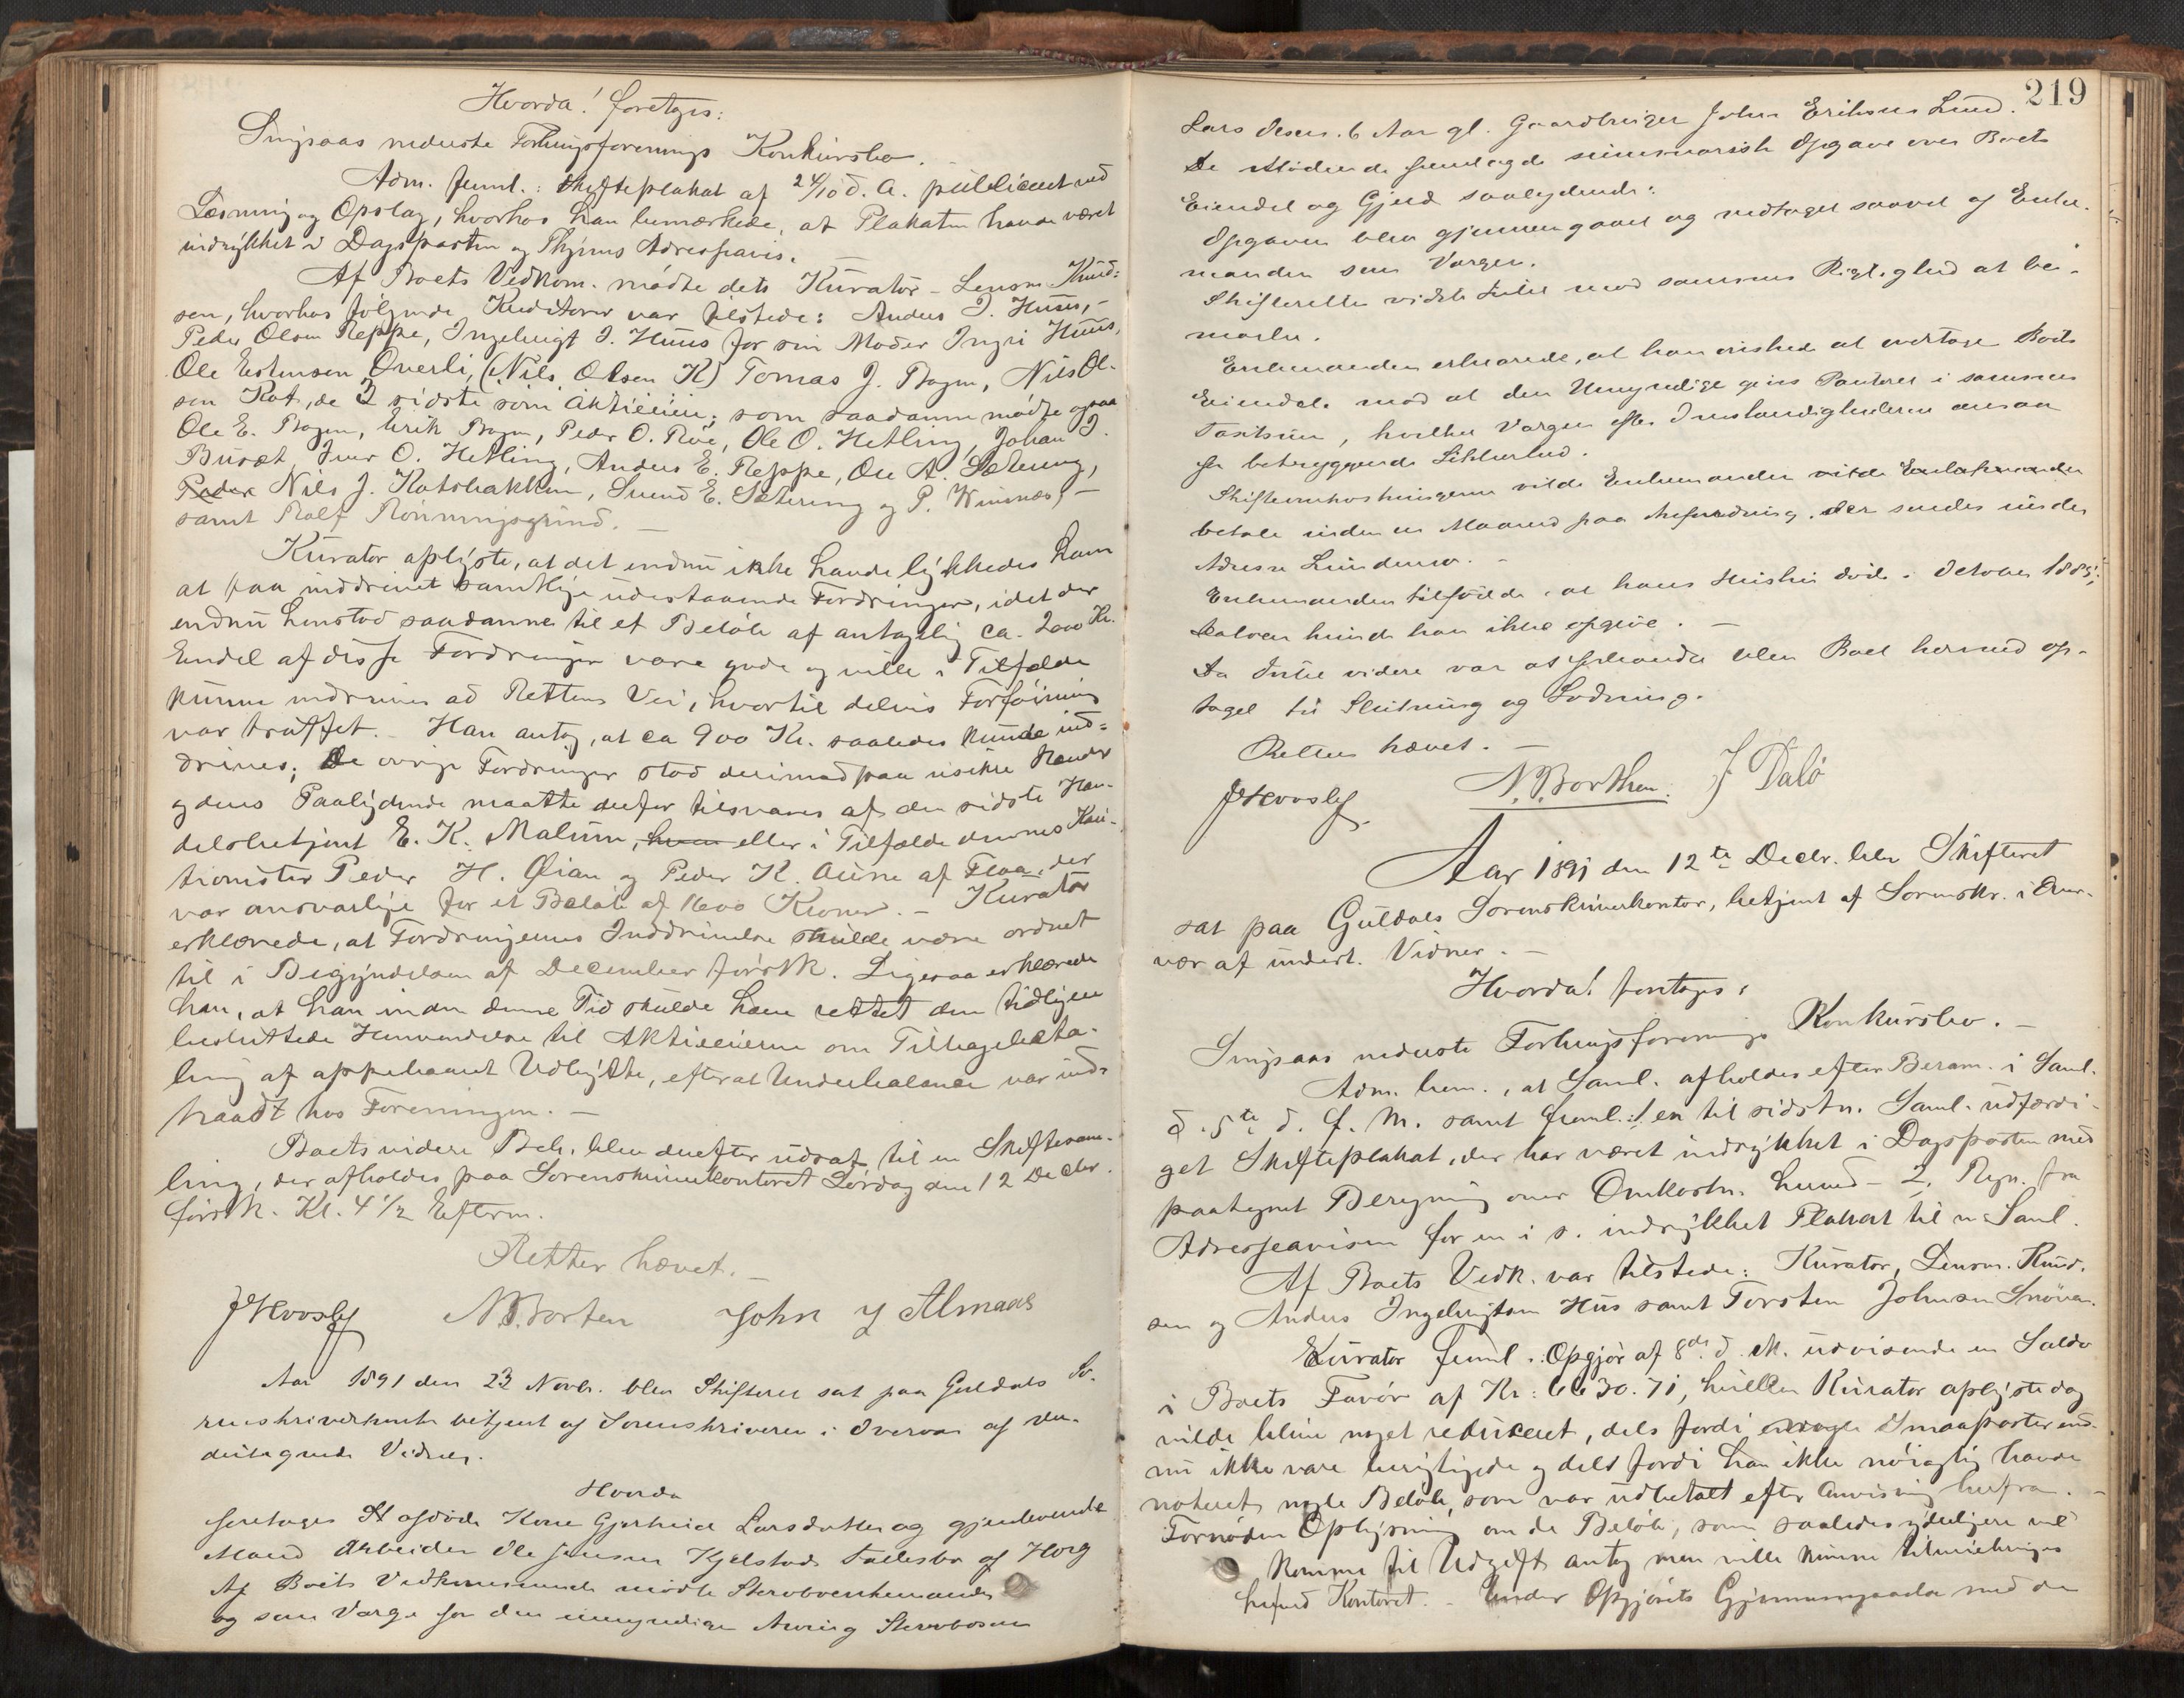 Hvorda! foretoges:
Singsaas nederste Forbrugsforenings Konkursbo.
Adm. freml.: Skifteplakat af 24/10 d. A. publiceret ved
Læsning og Opslag, hvorhos han bemærkede, at Plakaten havde været
indrykket i Dagsposten og Thjems Adresseavis.
Af Boets Vedkom. mødte dets Kurator - Lensm. Knud-
sen, hvorhos følgende Kreditorer var tilstede: Anders I. Huus,
Peder Olsen Reppe, Ingebrigt I. Huus for sin Moder Ingri Huus,
Ole Estensen Overli, (Nils Olsen K) Tomas J. Bogen, Nils Ol-
sen Kot, de 2 sidste som Aktieeiere; som saadanne mødte ogsaa
Ole E. Bogen, Erik Bogen, Peder O. Roe, Ole O. Hetling, Johan J.
Buræt Iver O. Hetling, Anders E. Reppe, Ole A. Sætering,
Peder Nils J. Kotsbakken, Svend E. Sætering og P. Winsnes,
samt Rolf Rønningsgrind.
Kurator oplyste, at det endnu ikke havde lykkedes ham
at faa inddrevet samtlige udestaaende Fordringer, idet der
endnu henstod saadanne til et Beløb af antagelig ca. 2000 Kr.
Endel af disse Fordringer vare gode og ville i Tilfælde
kunne inddrives ad Rettens Vei, hvortil delvis Forføining
var truffet. - Han antog, at ca 900 Kr. saaledes kunde ind-
drives; De øvrige Fordringer stod derimod paa usikre Hænder
og deres Paalydende maatte derfor tilsvares af den sidste Han-
delsbetjent E. K. Malum, hvem eller i Tilfælde dennes Kau-
tionister Peder H. Øian og Peder K. Aune af Flaa, der
var ansvarlige for et Beløb af 1600 Kroner. - Kurator
erklærede, at Fordringernes Inddrivelse skulde være ordnet
til i Begyndelsen af December førstk. Ligesaa erklærede
han, at han inden denne Tid skulde have rettet den tidligere
besluttede Henvendelse til Aktieeierne om Tilbagebeta-
ling af oppebaaret Udbytte, efterat Underbalance var ind-
traadt hos Foreningen. -
Boets videre Beh. blev derefter udsat til en Skiftesam-
ling, der afholdes paa Sorenskriverkontoret Lørdag den 12 Decbr.
førstk. Kl. 4 1/2 Efterm.
Retten hævet. -
N. Borten John J Almaas
Aar 1891 den 23 Novb. blev Skifteret sat paa Guldals So-
renskriverkontor betjent af Sorenskriveren i Overvær af un-
dertegnede Vidner.
Hvorda
foretoges afdøde Kone Gjertrud Larsdatter og gjenlevende
Mand Arbeider Ole Jensen Kjelstads Fællesbo af Horg
Af Boets Vedkommende mødte Stervboenkemanden
og som Værge for den umyndige Arving Stervbosøn
219
Lars Olesen 6 Aar gl. Gaardbruger John Eriksen Lund.
De Mødende fremlagde summarisk Opgave over Boets
Eiendel og Gjæld saalydende:
Opgaven blev gjennemgaaet og vedtaget saavel af Enke-
manden som Værgen.
Skifteretten vidste Intet mod sammes Rigtighed at be-
mærke.
Enkemanden erklærede, at han ønskede at overtage Boets
Eiendele mod at den Umyndige gives Panteret i sammes
Taxtsum, hvilket Værgen efter Omstændighederne ansaa
for betryggende Sikkerhed.
Skifteomkostningerne vilde Enkemanden vilde Enkemanden
betale inden en Maaned paa Anfordring, der sendes under
Adresse Lundemo. -
Enkemanden tilføiede, at hans Hustru døde i October 1885;
Datoen kunde han ikke opgive. -
Da Intet videre var at forhandle blev Boet hermed op-
taget til Slutning og Lodning.
Retten hævet. -
N. Borthen. J Dalø
Aar 1891 den 12te Decbr. blev Skifteret
sat paa Guldals Sorenskriverkontor, betjent af Sorenskr. i Over-
vær af undert. Vidner. -
Hvorda! foretoges:
Singsaas nederste Forbrugsforenings Konkursbo. -
Adm. bem., at Saml. afholdes efter Beram. i Saml.
d. 5te d. f. M. samt freml.: 1. en til sidstn. Saml. udfærdi-
get Skifteplakat, der har været indrykket i Dagsposten med
paategnet Beregning over Omkostn. herved - 2. Regn. fra
Adresseavisen for en i s. indrykket Plakat til n. Saml.
Af Boets Vedk. var tilstede: Kurator, Lensm. Knud-
sen og Anders Ingebrigtsen Hus samt Torsten Johnsen Snøuen.
Kurator freml.: Opgjør af 8de d. M. udvisende en Saldo
i Boets Favør af Kr: 6630.71, hvilken Kurator oplyste dog
vilde blive noget reduceret, dels fordi endogle Smaaposter end-
nu ikke vare berigtigede og dels fordi han ikke nøiagtig havde
noteret nogle Beløb, som var udbetalt efter Anvisning herfra. -
Fornøden Oplysning om de Beløb, som saaledes yderligere vil
komme til Udgift antog man ville kunne tilveiebringes
herved Kontoret. - Under Opgjørets Gjennemgaaelse med de